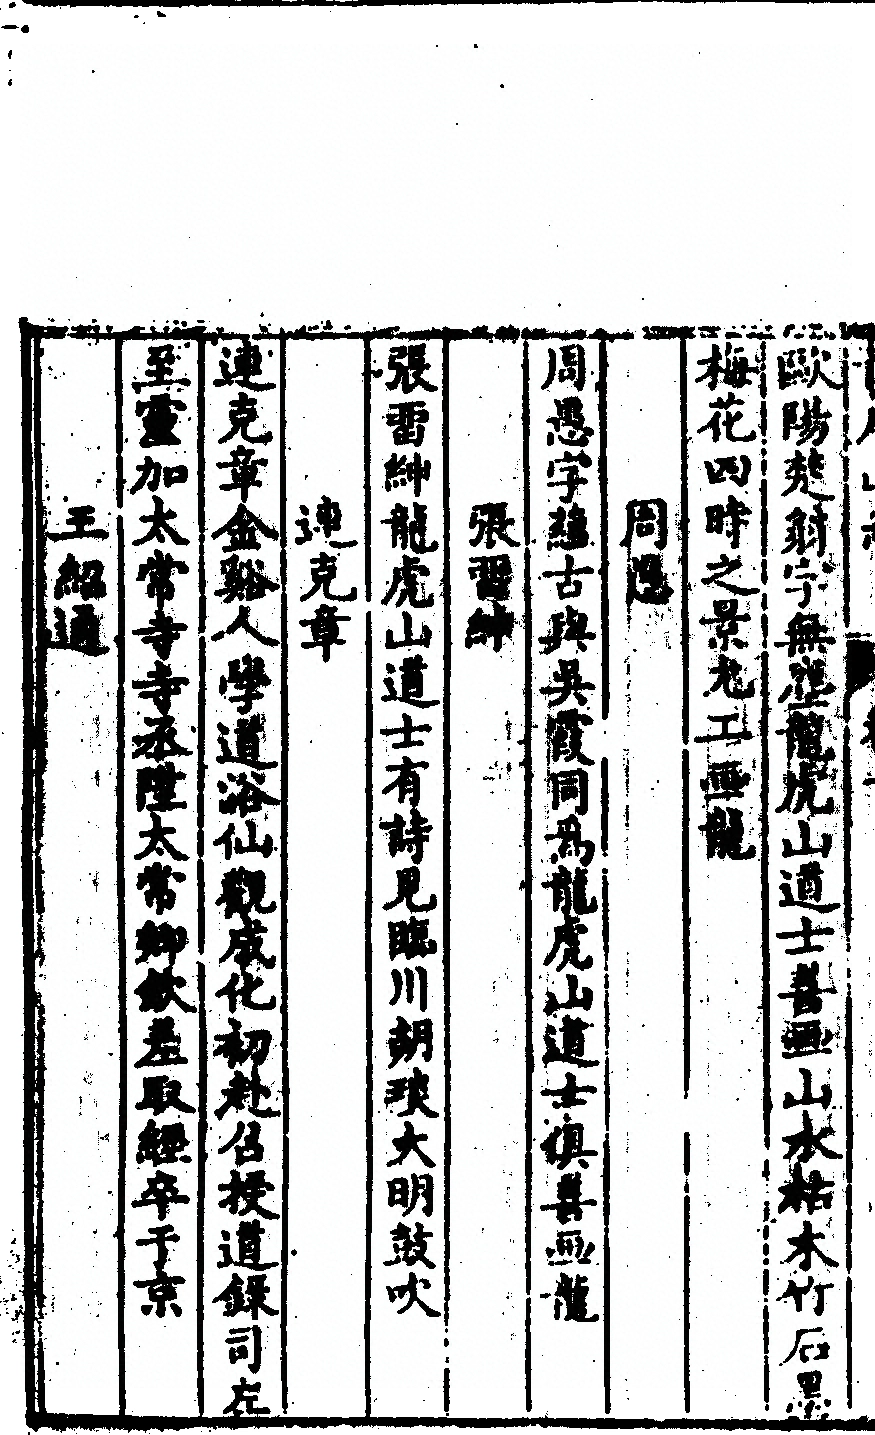 歐陽楚翁字無塵龍虎山道士善画山水枯木竹石墨
梅花四時之景尤工画龍
周愚
周愚字蘊古與吳霞同為龍虎山道士俱善画龍
張雷紳
張雷紳龍虎山道士有詩見臨川胡琰大明鼓吹
連克章
連克章金谿人學道浴仙觀成化初赴召授道錄司左
至靈加太常寺寺丞陞太常卿欽差取經卒于京
王紹通